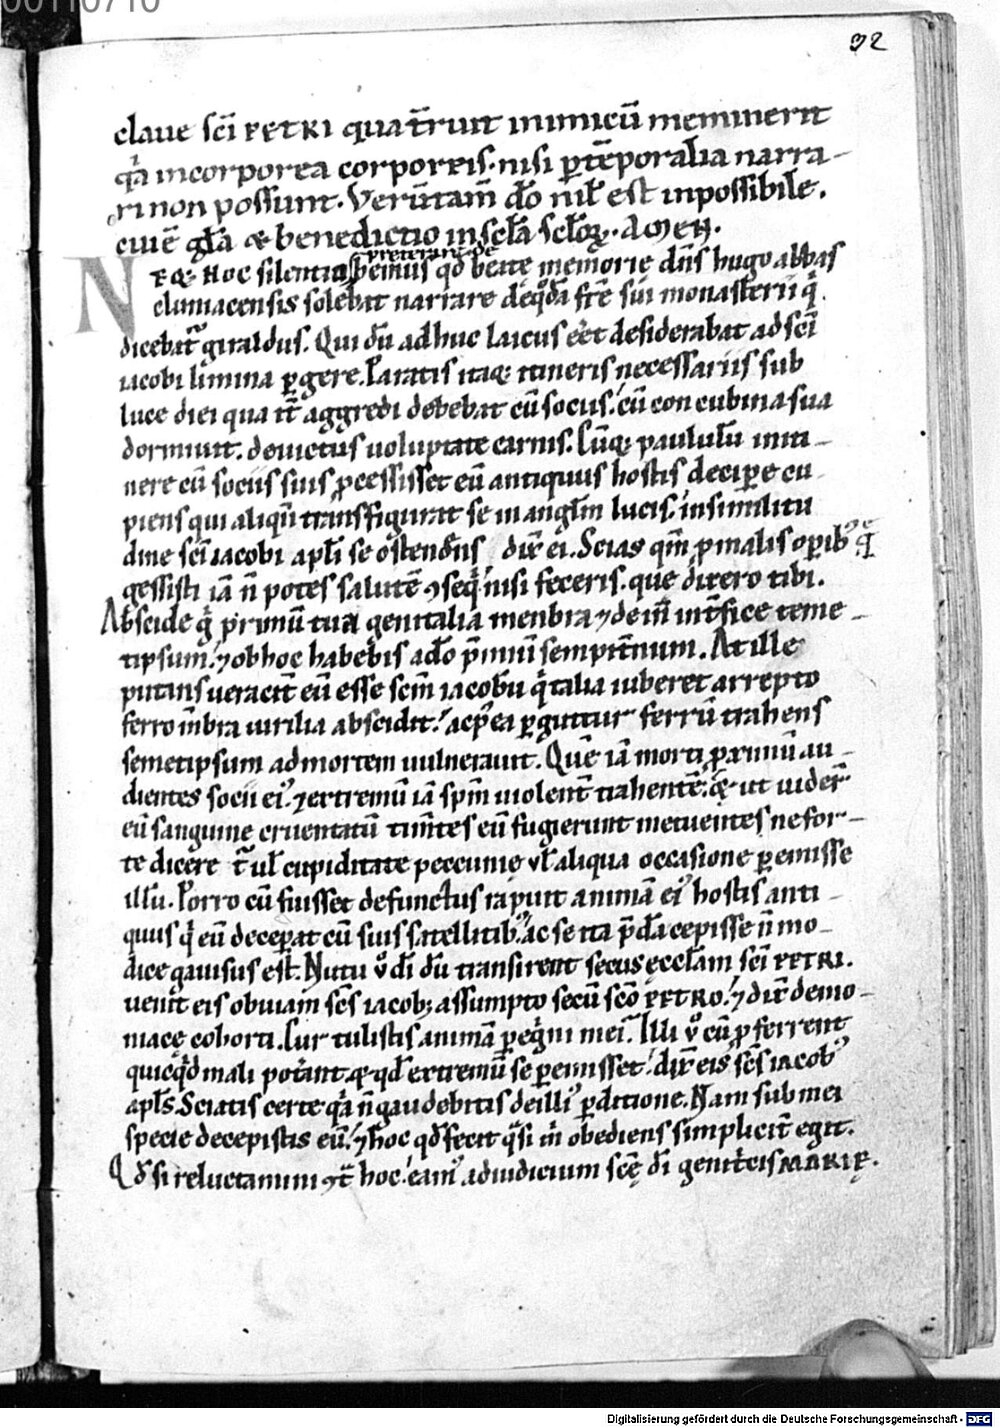 00110710
32
claue sc̄i PETRI qua t̄ruit inimicū meminerit
qa̍ incorporea corporeis. nisi p̱ tēporalia narra-
ri non possunt. Verūtam̄ dō nil̄ est inpossibile.
cui ē gl̄a & benedictio in scl̄a scl̄oꝝ. AMEN.
preterire de
NEQ; HOC silentio bemus qd̄ beatę memorię dn̄s hugo abbas
cluniacensis solebat narrare de qd̄a fr̄e sui monasterii q̍
dicebat̄ giraldus. Qui dū adhuc laicus eēt desiderabat ad sc̄i
iacobi limina p̱gere. Paratis itaq; itineris necessariis sub
luce diei qua it̄ aggredi debebat cū sociis. cū concubina sua
dormiuit. deuictus uoluptate carnis. Cūq; paululū in iti-
nere cū sociis suis ꝓcessisset eū antiquus hostis decip̱e cu-
piens qui aliqn̄ transfigurat se in angl̄m lucis. in simili tu
dine sc̄i iacobi apl̄i se ostendēns dix̄ ei. Scias qm̄ ꝓ malis op̱ib; q̨
gessisti iā n̄ potes salutē ꝯseq̍. nisi feceris. que dixero tibi.
Abscide g̍ primū tua genitalia menbra ⁊ dein̄ int̄fice teme-
tipsum. ⁊ ob hoc habebis a dō p̄miū sempit̄num. At ille
putans veracit̄ eū esse scm̄ iacobū q̍ talia iuberet arrepto
ferro m̄bra uirilia abscidit. ac p̍ea p̱ guttur ferrū trahens
semetipsum ad mortem uulnerauit. Quē iā morti ꝓximū au-
dientes socii ei᾽. ⁊ extremū iā spm̄ uiolent̄ trahentē. & ut uider̄
eū sanguine cruentatū tim̄tes eū fugierunt metuentes ne for-
te dicer̄et̄ ul̄ cupiditate peccunię vl̄ aliqua occasione p̱emisse
illū. Porro cū fuisset defunctus rapuit animā ei᾽ hostis anti-
quus q̍ eū decep̱at cū suis satellitib; ac se ita p̄dā cepisse n̄ mo-
dice gauisus est. Nutu v̊ dī dū transirent secus ęccl̄am sc̄i PETRI.
uenit eis obuiam sc̄s iacob; assumpto secū sc̄o PETRO. ⁊ dix̄ demo-
niacę cohorti. Cur tulistis animā p̱eg̍ni mei. Illi v̊ cū ꝓferrent
quicq̍d mali pot̄ant & qd̄ extremū se p̱emisset. dix̄ eis sc̄s iacob᾽
apl̄s. Sciatis certe qa̍ n̄ gaudebitis de illi᾽ p̱ditione. Nam sub mei
specie decepistis eū. ⁊ hoc qd̄ fecit q̍si m̍ obediens simplicit̄ egit.
Qd̄ si reluctamini ꝯt̄ hoc. eam᾽ ad iudicium scę̄ dī genit̄cis MARIĘ.
Digitalisierung gefördert durch die Deutsche Forschungsgemeinschaft - DFG